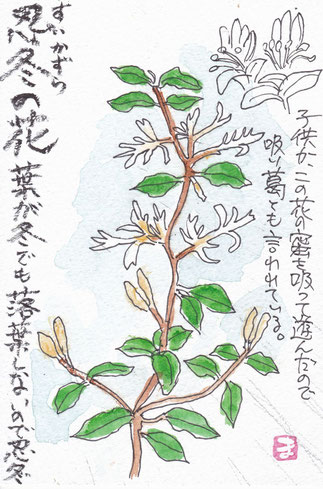 すいかずら
忍冬の花 葉が冬でも落葉しないので忍冬
子供がこの花の蜜を吸って遊んだので
吸い葛とも言われている。
ま